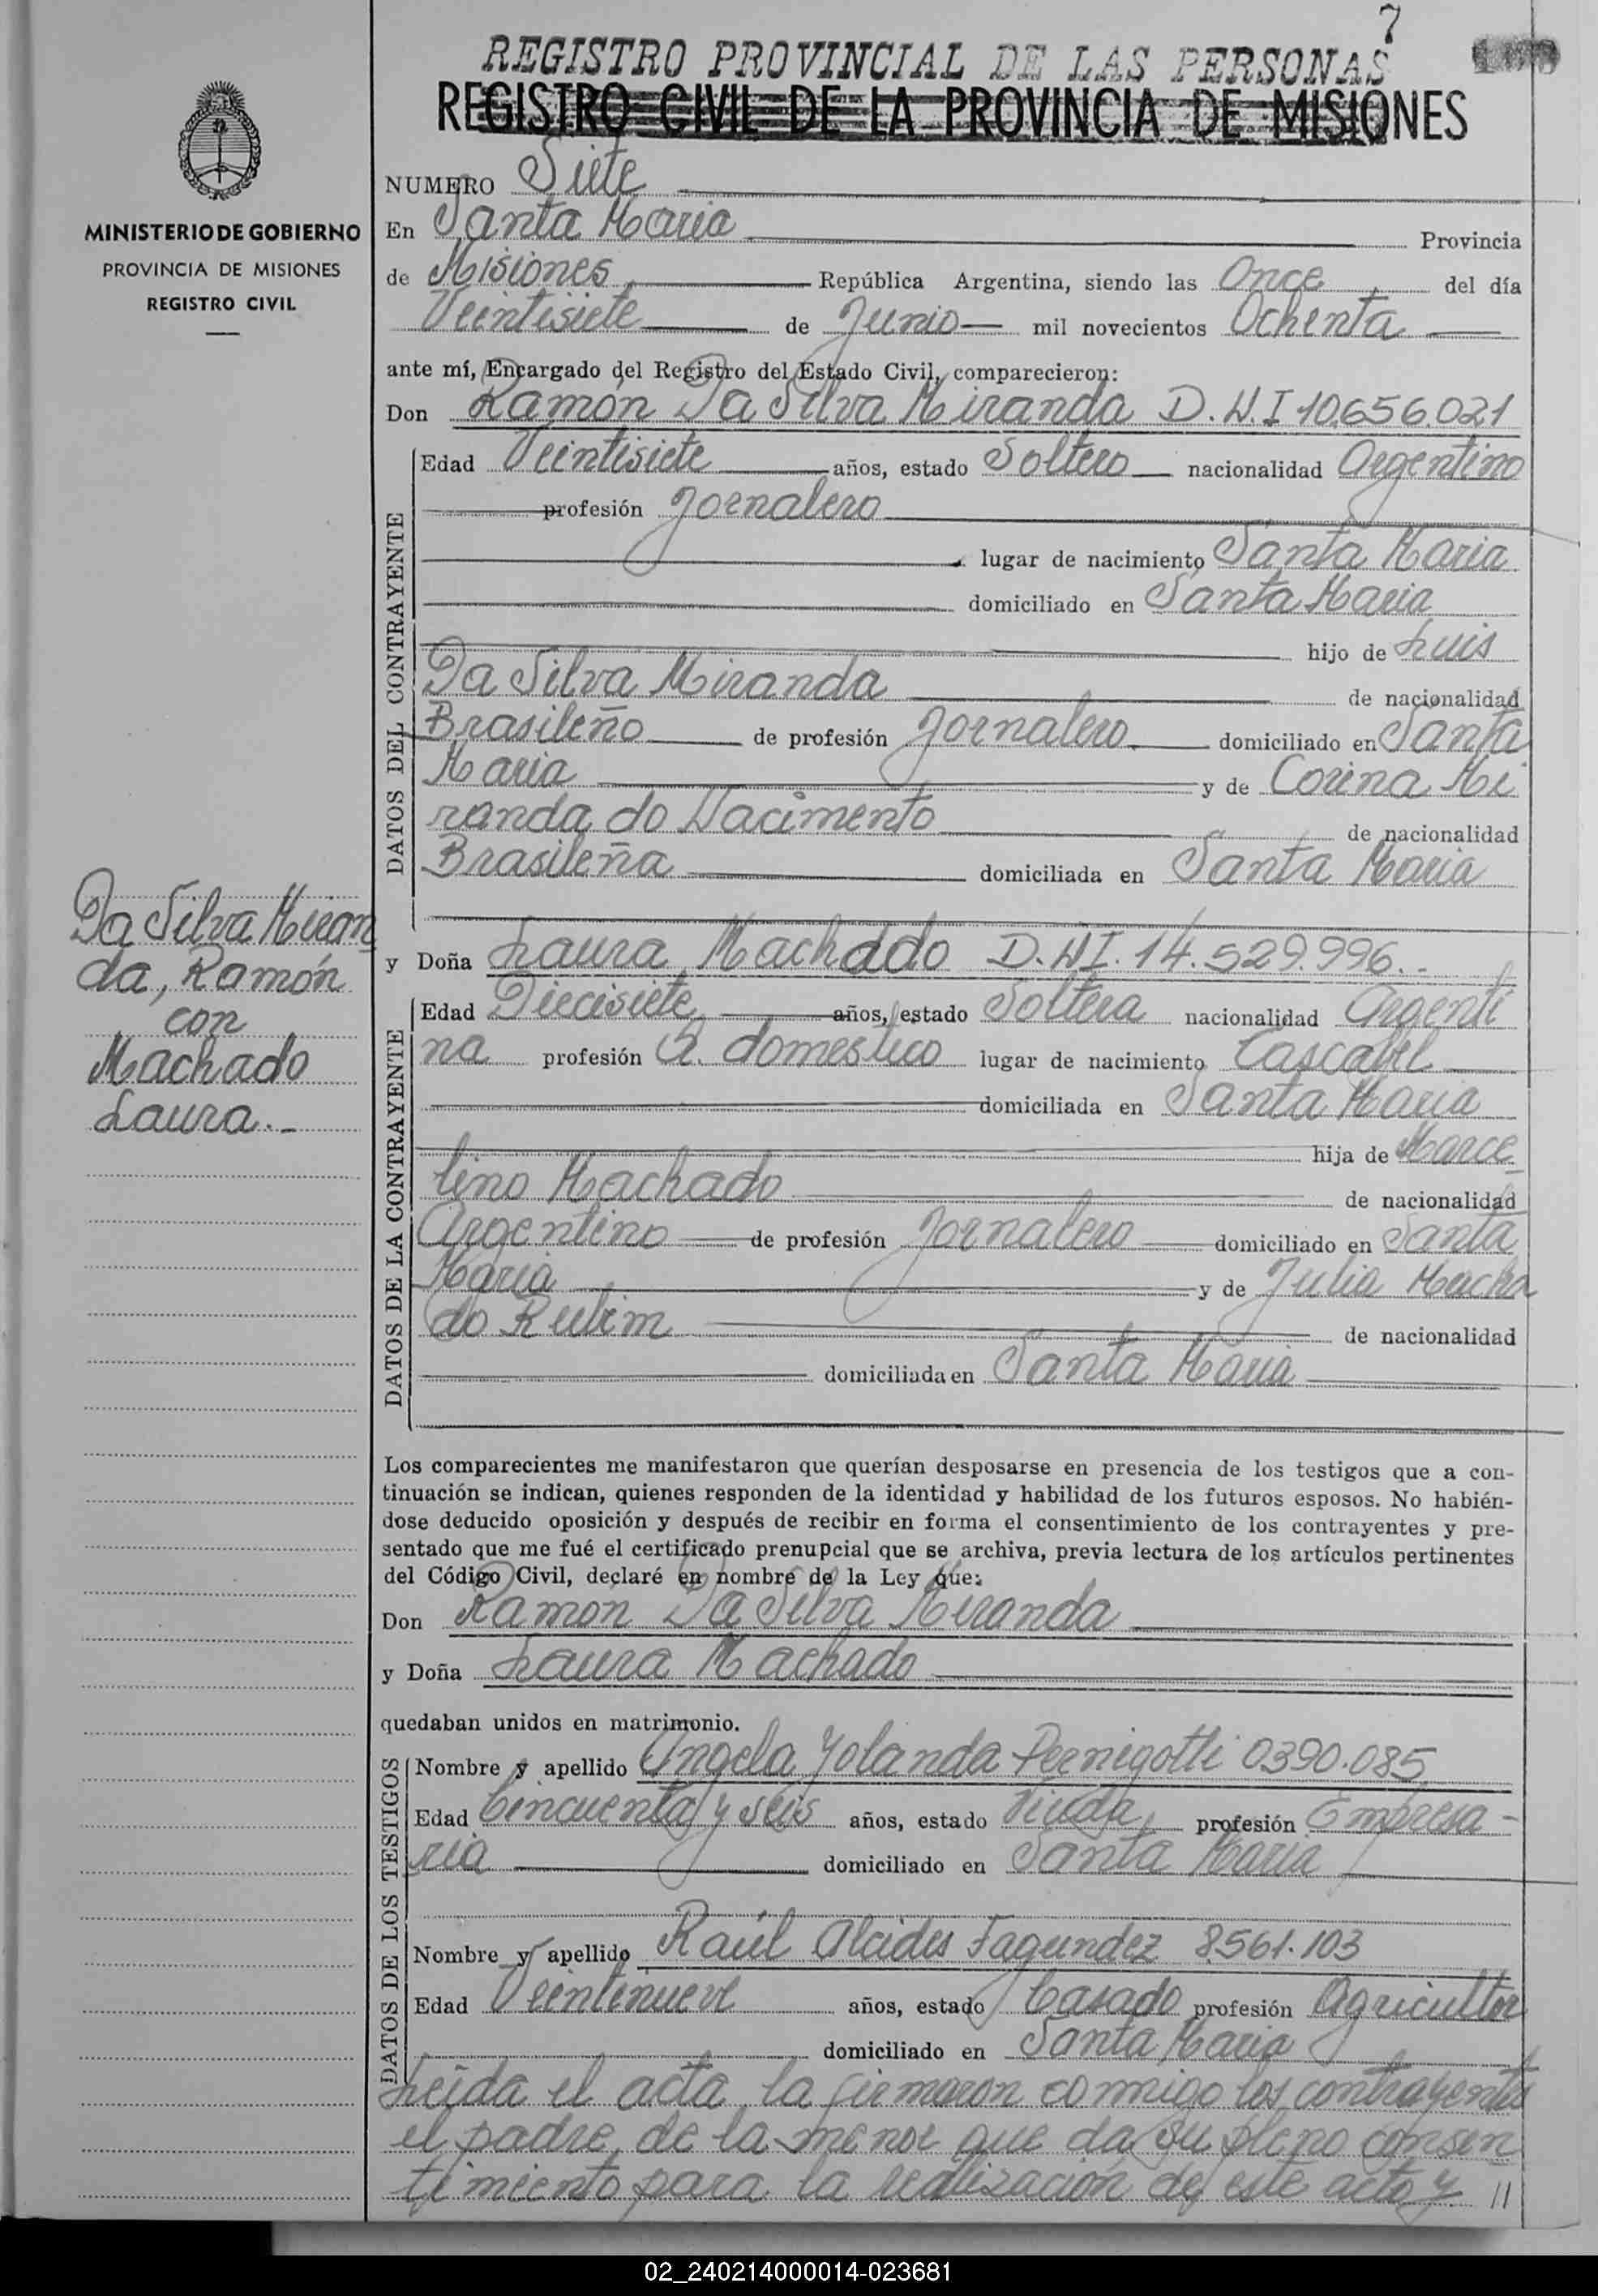 7
REGISTRO PROVINCIAL DE LAS PERSONAS
REGISTRO CIVIL DE LA PROVINCIA DE MISIONES
MINISTERIO DE GOBIERNO
PROVINCIA DE MISIONES
REGISTRO CIVIL
NUMERO Siete
En Santa Maria Provincia
de Misiones República Argentina, siendo las Once del día
Veintisiete de Junio mil novecientos Ochenta
ante mí, Encargado del Registro del Estado Civil, comparecieron:
Don Ramón Da Silva Miranda D.N.I 10.656.021
DATOS DEL CONTRAYENTE
Edad Veintisiete años, estado Soltero nacionalidad Argentino
profesión Jornalero
lugar de nacimiento Santa Maria
domiciliado en Santa Maria
hijo de Luis
Da Silva Miranda de nacionalidad
Brasileño de profesión Jornalero domiciliado en Santa
Maria y de Corina Mi
randa do Nacimento de nacionalidad
Brasileña domiciliada en Santa Maria
Da Silva Miran
da, Ramón
con
Machado
Laura.-
y Doña Laura Machado D.N.I. 14.529.996.
DATOS DE LA CONTRAYENTE
Edad Diecisiete años, estado Soltera nacionalidad Argenti
na profesión Q. domestico lugar de nacimiento Cascabel
domiciliada en Santa Maria
hija de Marce
lino Machado de nacionalidad
Argentino de profesión Jornalero domiciliado en Santa
Maria y de Julia Macha
do Rubim de nacionalidad
domiciliada en Santa Maria
Los comparecientes me manifestaron que querían desposarse en presencia de los testigos que a con-
tinuación se indican, quienes responden de la identidad y habilidad de los futuros esposos. No habién-
dose deducido oposición y después de recibir en forma el consentimiento de los contrayentes y pre-
sentado que me fué el certificado prenupcial que se archiva, previa lectura de los artículos pertinentes
del Código Civil, declaré en nombre de la Ley que:
Don Ramón Da Silva Miranda
y Doña Laura Machado
quedaban unidos en matrimonio.
DATOS DE LOS TESTIGOS
Nombre y apellido Angela Yolanda Pernigotti 0390.085
Edad Cincuenta y seis años, estado Viuda profesión Empresa-
ria domiciliado en Santa Maria
Nombre y apellido Raúl Alcides Fagundez 8561.103
Edad Veintinueve años, estado Casado profesión Agricultor
domiciliado en Santa Maria
Leida el acta, la firmaron conmigo los contrayentes
el padre de la menor que da su pleno consen
timiento para la realización de este acto y //
02_240214000014-023681